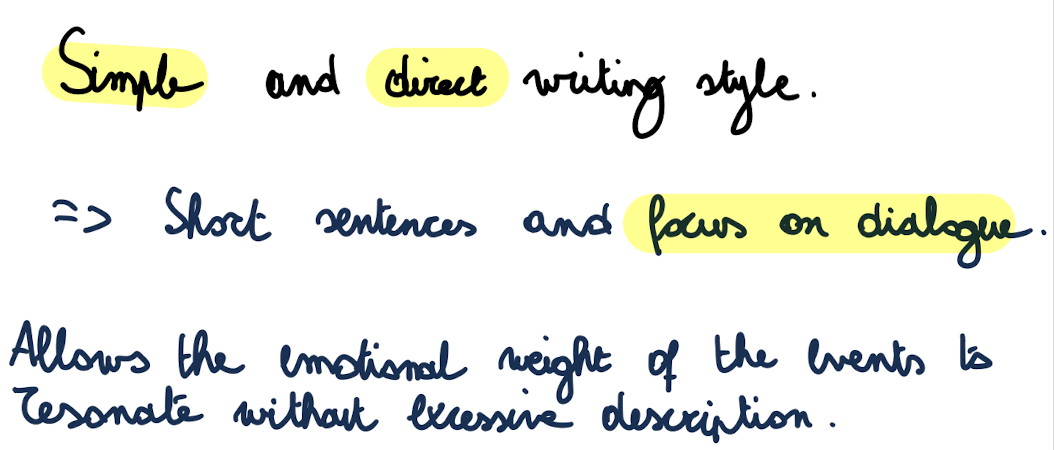 Simple and direct writing style.
=> Short sentences and focus on dialogue.
Allows the emotional weight of the events to
resonate without excessive description.